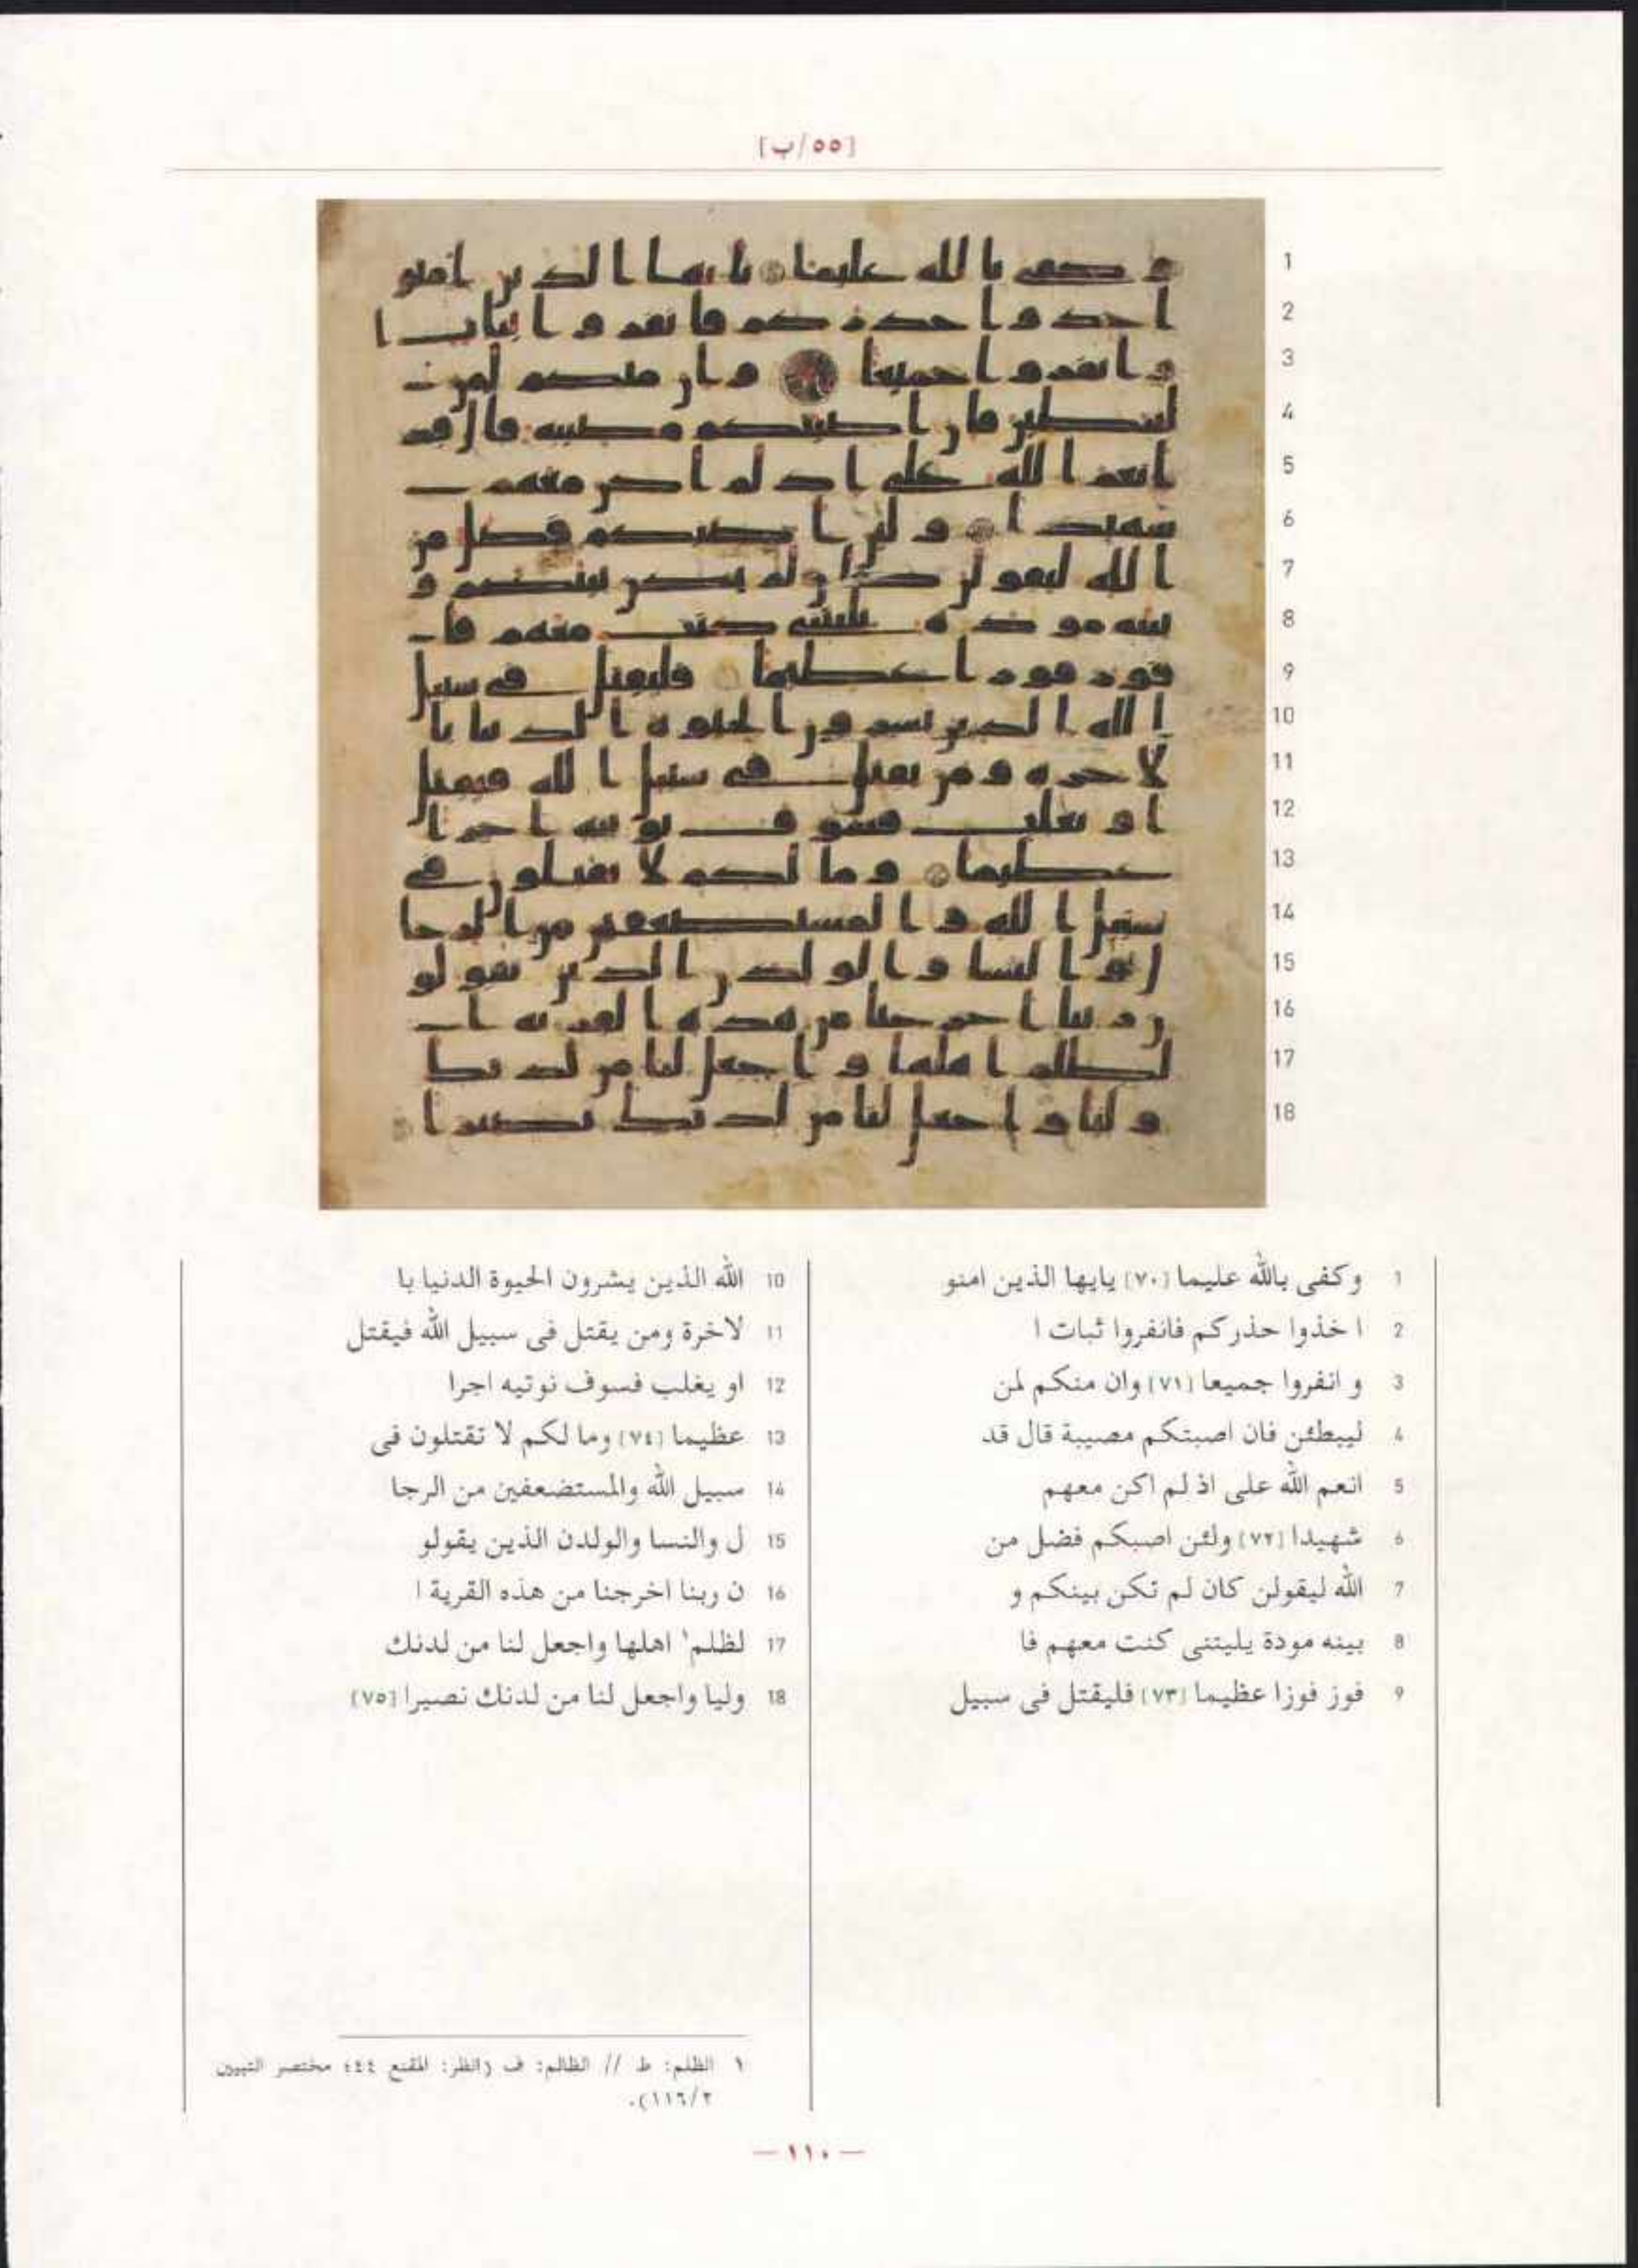 [٥٥/ب]
1
2
3
4
5
6
7
8
9
10
11
12
13
14
15
16
17
18
1 وكفى بالله عليما [٧٠] يايها الذين امنو
2 ا خذوا حذركم فانفروا ثبات ا
3 و انفروا جميعا [٧١] وان منكم لمن
4 ليبطئن فان اصبتكم مصيبة قال قد
5 انعم الله على اذ لم اكن معهم
6 شهيدا [٧٢] ولئن اصبكم فضل من
7 الله ليقولن كان لم تكن بينكم و
8 بينه مودة يليتنى كنت معهم فا
9 فوز فوزا عظيما [٧٣] فليقتل فى سبيل
10 الله الذين يشرون الحيوة الدنيا با
11 لاخرة ومن يقتل فى سبيل الله فيقتل
12 او يغلب فسوف نوتيه اجرا
13 عظيما [٧٤] وما لكم لا تقتلون فى
14 سبيل الله والمستضعفين من الرجا
15 ل والنسا والولدن الذين يقولو
16 ن ربنا اخرجنا من هذه القرية ا
17 لظلم١ اهلها واجعل لنا من لدنك
18 وليا واجعل لنا من لدنك نصيرا [٧٥]
١ الظلم: ط // الظالم: ف (انظر: المقنع ٤٤؛ مختصر التبيين
٢/١١٦).
— ١١٠ —